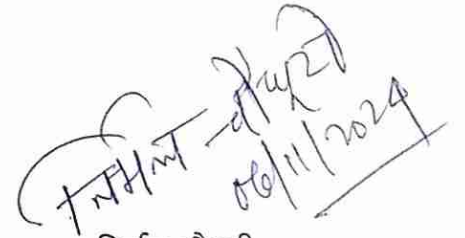 निर्मल चौधरी
06/11/2024